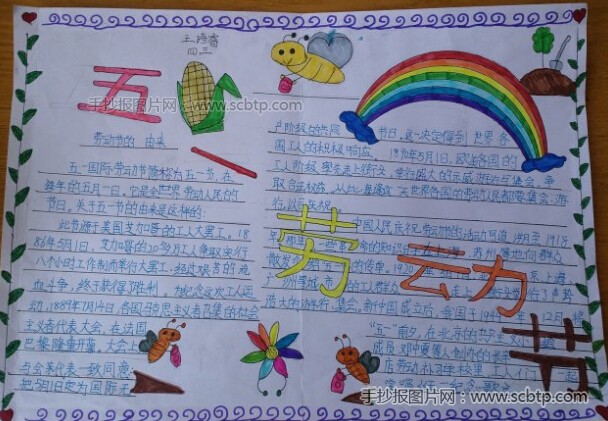 五一
劳动节
手抄报图片网：www.scbtp.com
劳动节的 由来
五一国际劳动节简称为五一节，在
每年的五月一日。它是全世界劳动人民的
节日。关于五一节的由来是这样的：
此节源于美国芝加哥的工人大罢工。18
86年5月1日，芝加哥的20多万工人争取实行
八个小时工作制而举行大罢工，经过艰苦的流
血斗争，终于获得胜利，为纪念这次工人运
动，1889年7月14日，各国马克思主义者召集的社会
主义者代表大会，在法国
巴黎隆重开幕。大会上
与会代表一致同意：
把5月1日定为国际无
产阶级的共同 节日，这一决定得到世界各
国工人的积极响应。1890年5月1日，欧美各国的
工人阶级率先走上街头，举行盛大的示威游行与集会，争
取合法权益。从此每逢这一天世界各国的劳动人民都要集会、游
行，以示庆祝。
中国人民庆祝劳动节的活动可追溯至1918
年 一些 知识 上海、苏州 等地向群众
散发 五一 的传单。1920 上海
工人群众 走上街头
浩大的游行、集会。新中国成立后，我国于1949年12月将
“五一”前夕，在北京的共产主义小组
成员邓中夏等人创办的长辛
店劳动补习学校里，工人们一起
纪念歌
手抄报图片网：www.scbtp.com